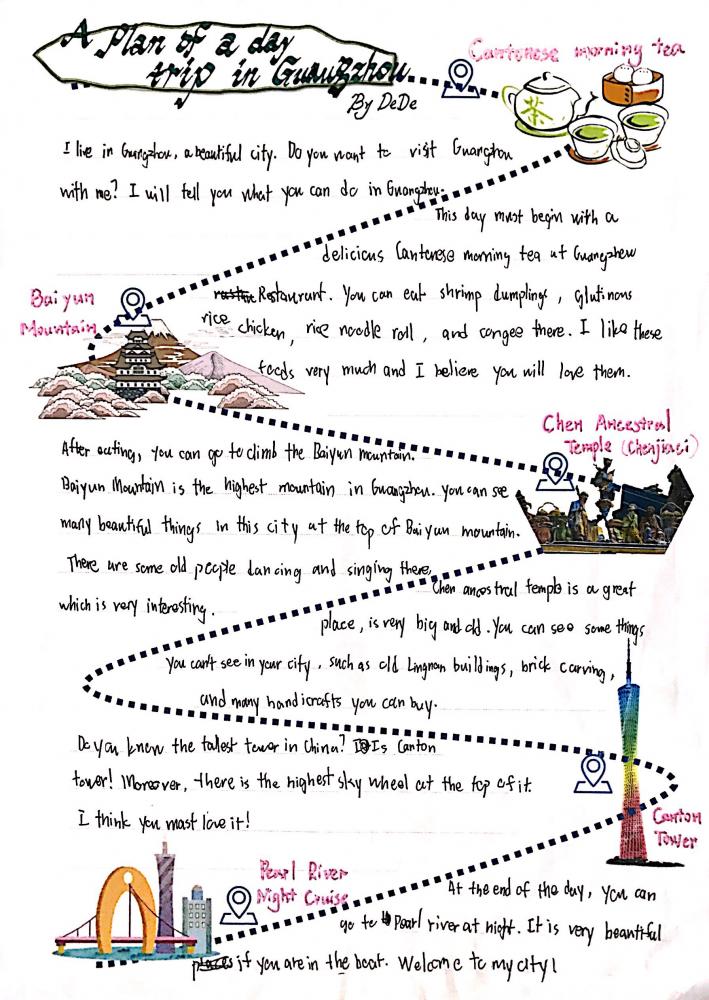 A Plan of a day
trip in Guangzhou
By DeDe
Cantonese morning tea
茶
I live in Guangzhou, a beautiful city. Do you want to visit Guangzhou
with me? I will tell you what you can do in Guangzhou.
This day must begin with a
delicious Cantonese morning tea at Guangzhou
Restaurant. You can eat shrimp dumplings, glutinous
rice chicken, rice noodle roll, and congee there. I like these
foods very much and I believe you will love them.
Baiyun
Mountain
Chen Ancestral
Temple (Chenjiaci)
After eating, you can go to climb the Baiyun mountain.
Baiyun Mountain is the highest mountain in Guangzhou. You can see
many beautiful things in this city at the top of Baiyun mountain.
There are some old people dancing and singing there,
which is very interesting.
Chen ancestral temple is a great
place, is very big and old. You can see some things
you can't see in your city, such as old Lingnan buildings, brick carving,
and many handicrafts you can buy.
Do you know the tallest tower in China? Is Canton
tower! Moreover, there is the highest sky wheel at the top of it.
I think you mast love it!
Canton
Tower
Pearl River
Night Cruise
At the end of the day, you can
go to Pearl river at night. It is very beautiful
if you are in the boat. Welcome to my city!